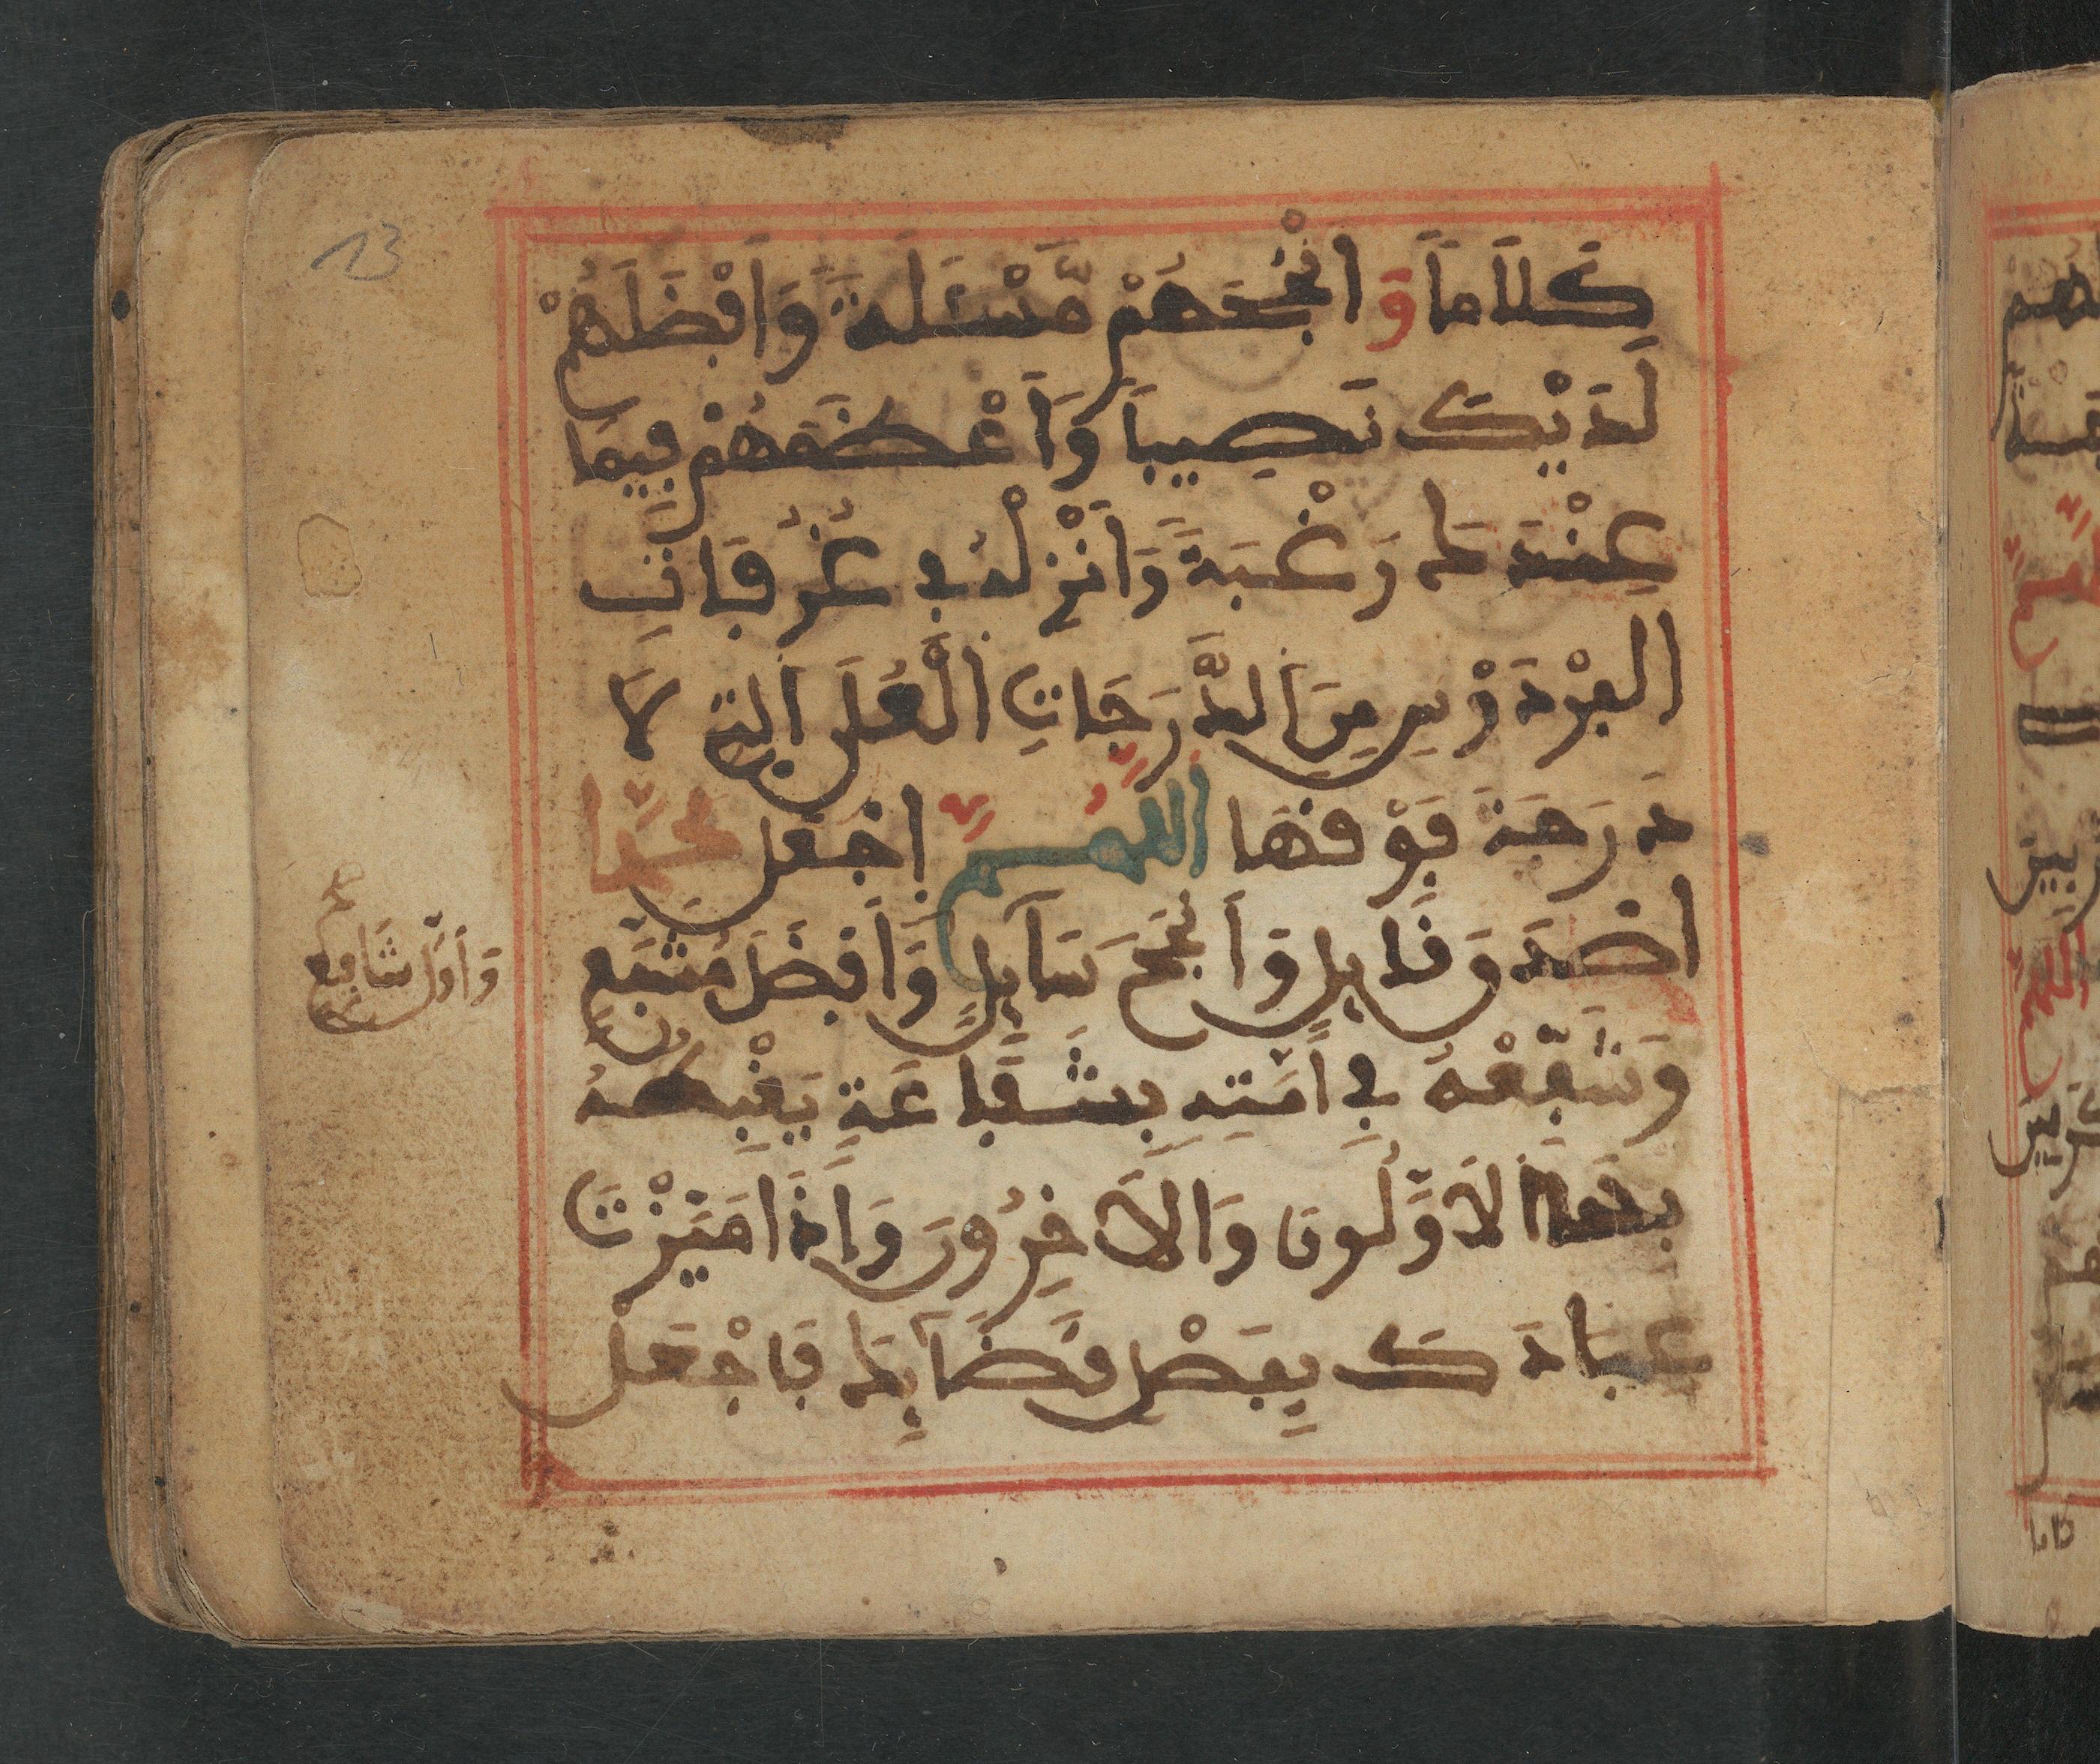 13
كَلَاماً وَ انْجَحَهُمْ مَّسْئَلَةً وَأَفْضَلَهُمْ
لَدَيْكَ نَصِيباً وَأَعْظَمَهُمْ فِيمَا
عِنْدَكَ رَغْبَةً وَأَنْزِلْهُ فِي غُرُفَاتِ
الفِرْدَوْسِ مِنَ الدَّرَجَاتِ الْعُلَى التِي لَا
دَرَجَةَ فَوْقَهَا اللَّهُمَّ اِجْعَل مُحَمَّدا
اصْدَقَ قَايِلٍ وَأَنْجَحَ سَآيِلٍ وَأَفْضَلَ مُشَفَّعٍ
وَأَوَّل شَافِعٍ
وَشَفِّعْهُ فِي أُمَّتِهِ بِشَفَاعَةٍ يَغْبِطُهُ
بِهَا الأَوَّلُونَ وَالأَخِرُونَ وَإِذَا مَيَّزْتَ
عِبَادَكَ بِفَصْلِ قَضَآيِكَ فَاجْعَلْ